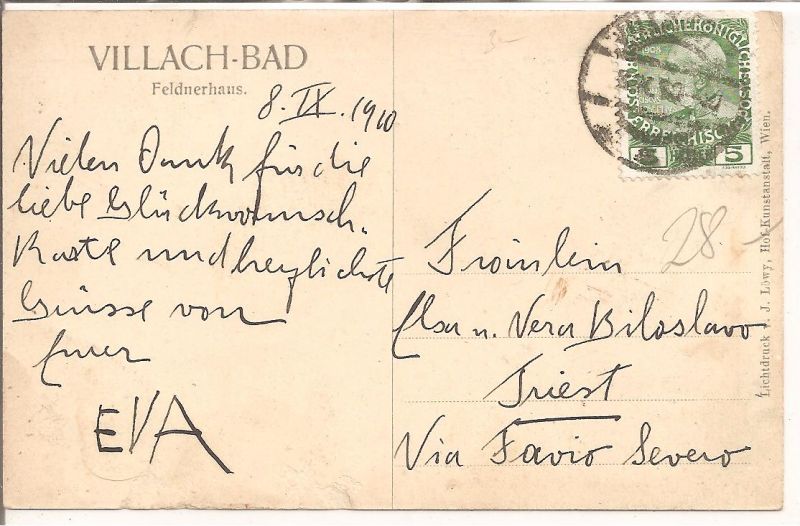 VILLACH-BAD
Feldnerhaus.
8. IX. 1910
Vielen Dank für die
liebe Glückwunsch-
Karte und herzlichste
Grüsse von
Euer
EVA
Fräulein
Elsa u. Vera Biloslavo
Triest
Via Favio Severo
28
1908
5 5
Lichtdruck v. J. Löwy, Hof-Kunstanstalt, Wien.